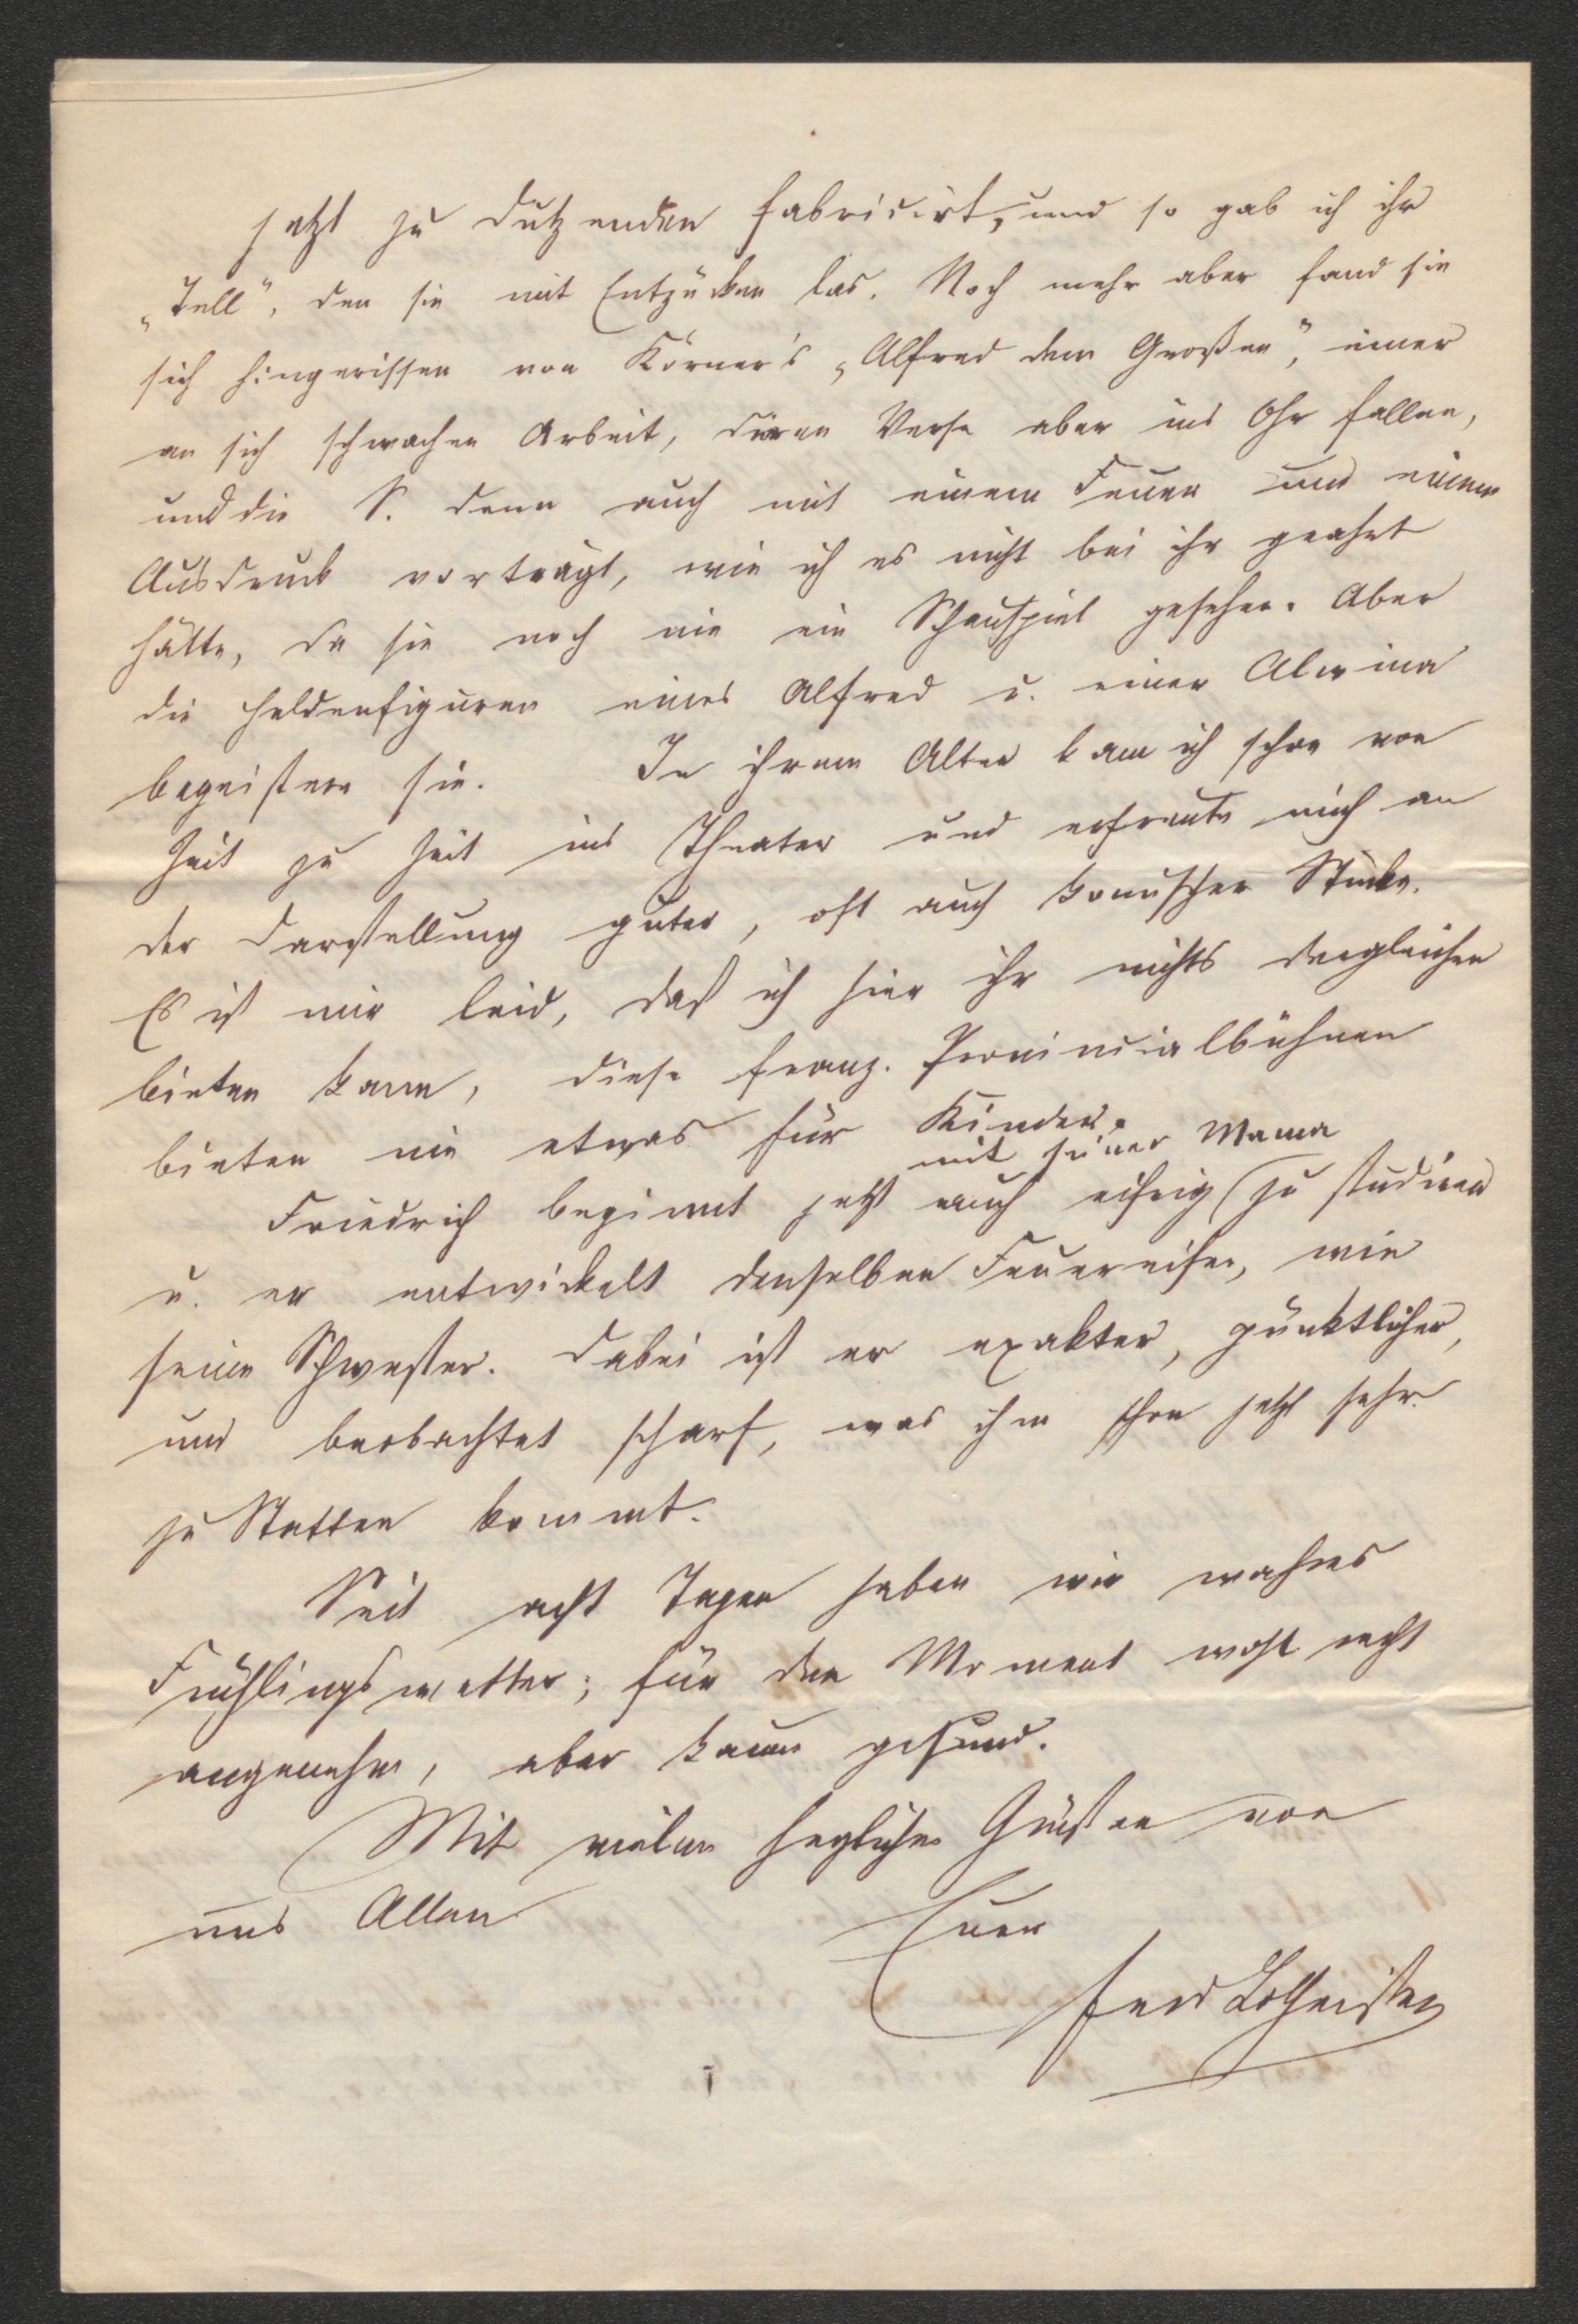 jetzt zu Dutzenden fabricirt, und so gab ich ihr
„Tell“, den sie mit Entzücken las. Noch mehr aber fand sie
sich hingerissen von Körner's „Alfred dem Großen“, einer
an sich schwachen Arbeit, deren Verse aber ins Ohr fallen,
und die S. denn auch mit einem Feuer und einem
Ausdruck vorträgt, wie ich es nicht bei ihr geahnt
hätte, da sie noch nie ein Schauspiel gesehen. Aber
die Heldenfiguren eines Alfred u. einer Alwina
begeistern sie. In ihrem Alter kam ich schon von
Zeit zu Zeit ins Theater und erfreute mich an
der Darstellung guter, oft auch komischer Stücke.
Es ist mir leid, daß ich hier ihr nichts dergleichen
bieten kann, diese franz. Provincialbühnen
bieten nie etwas für Kinder.
mit seiner Mama
Friedrich beginnt jetzt auch eifrig zu studiren
u. er entwickelt denselben Feuereifer, wie
seine Schwester. Dabei ist er exakter, pünktlicher,
und beobachtet scharf, was ihm schon jetzt sehr
zu Statten kommt.
Seit acht Tagen haben wir wahres
Frühlingswetter; für den Moment wohl recht
angenehm, aber kaum gesund.
Mit vielen herzlichen Grüßen von
uns Allen Euer
Ferd Lotheißen